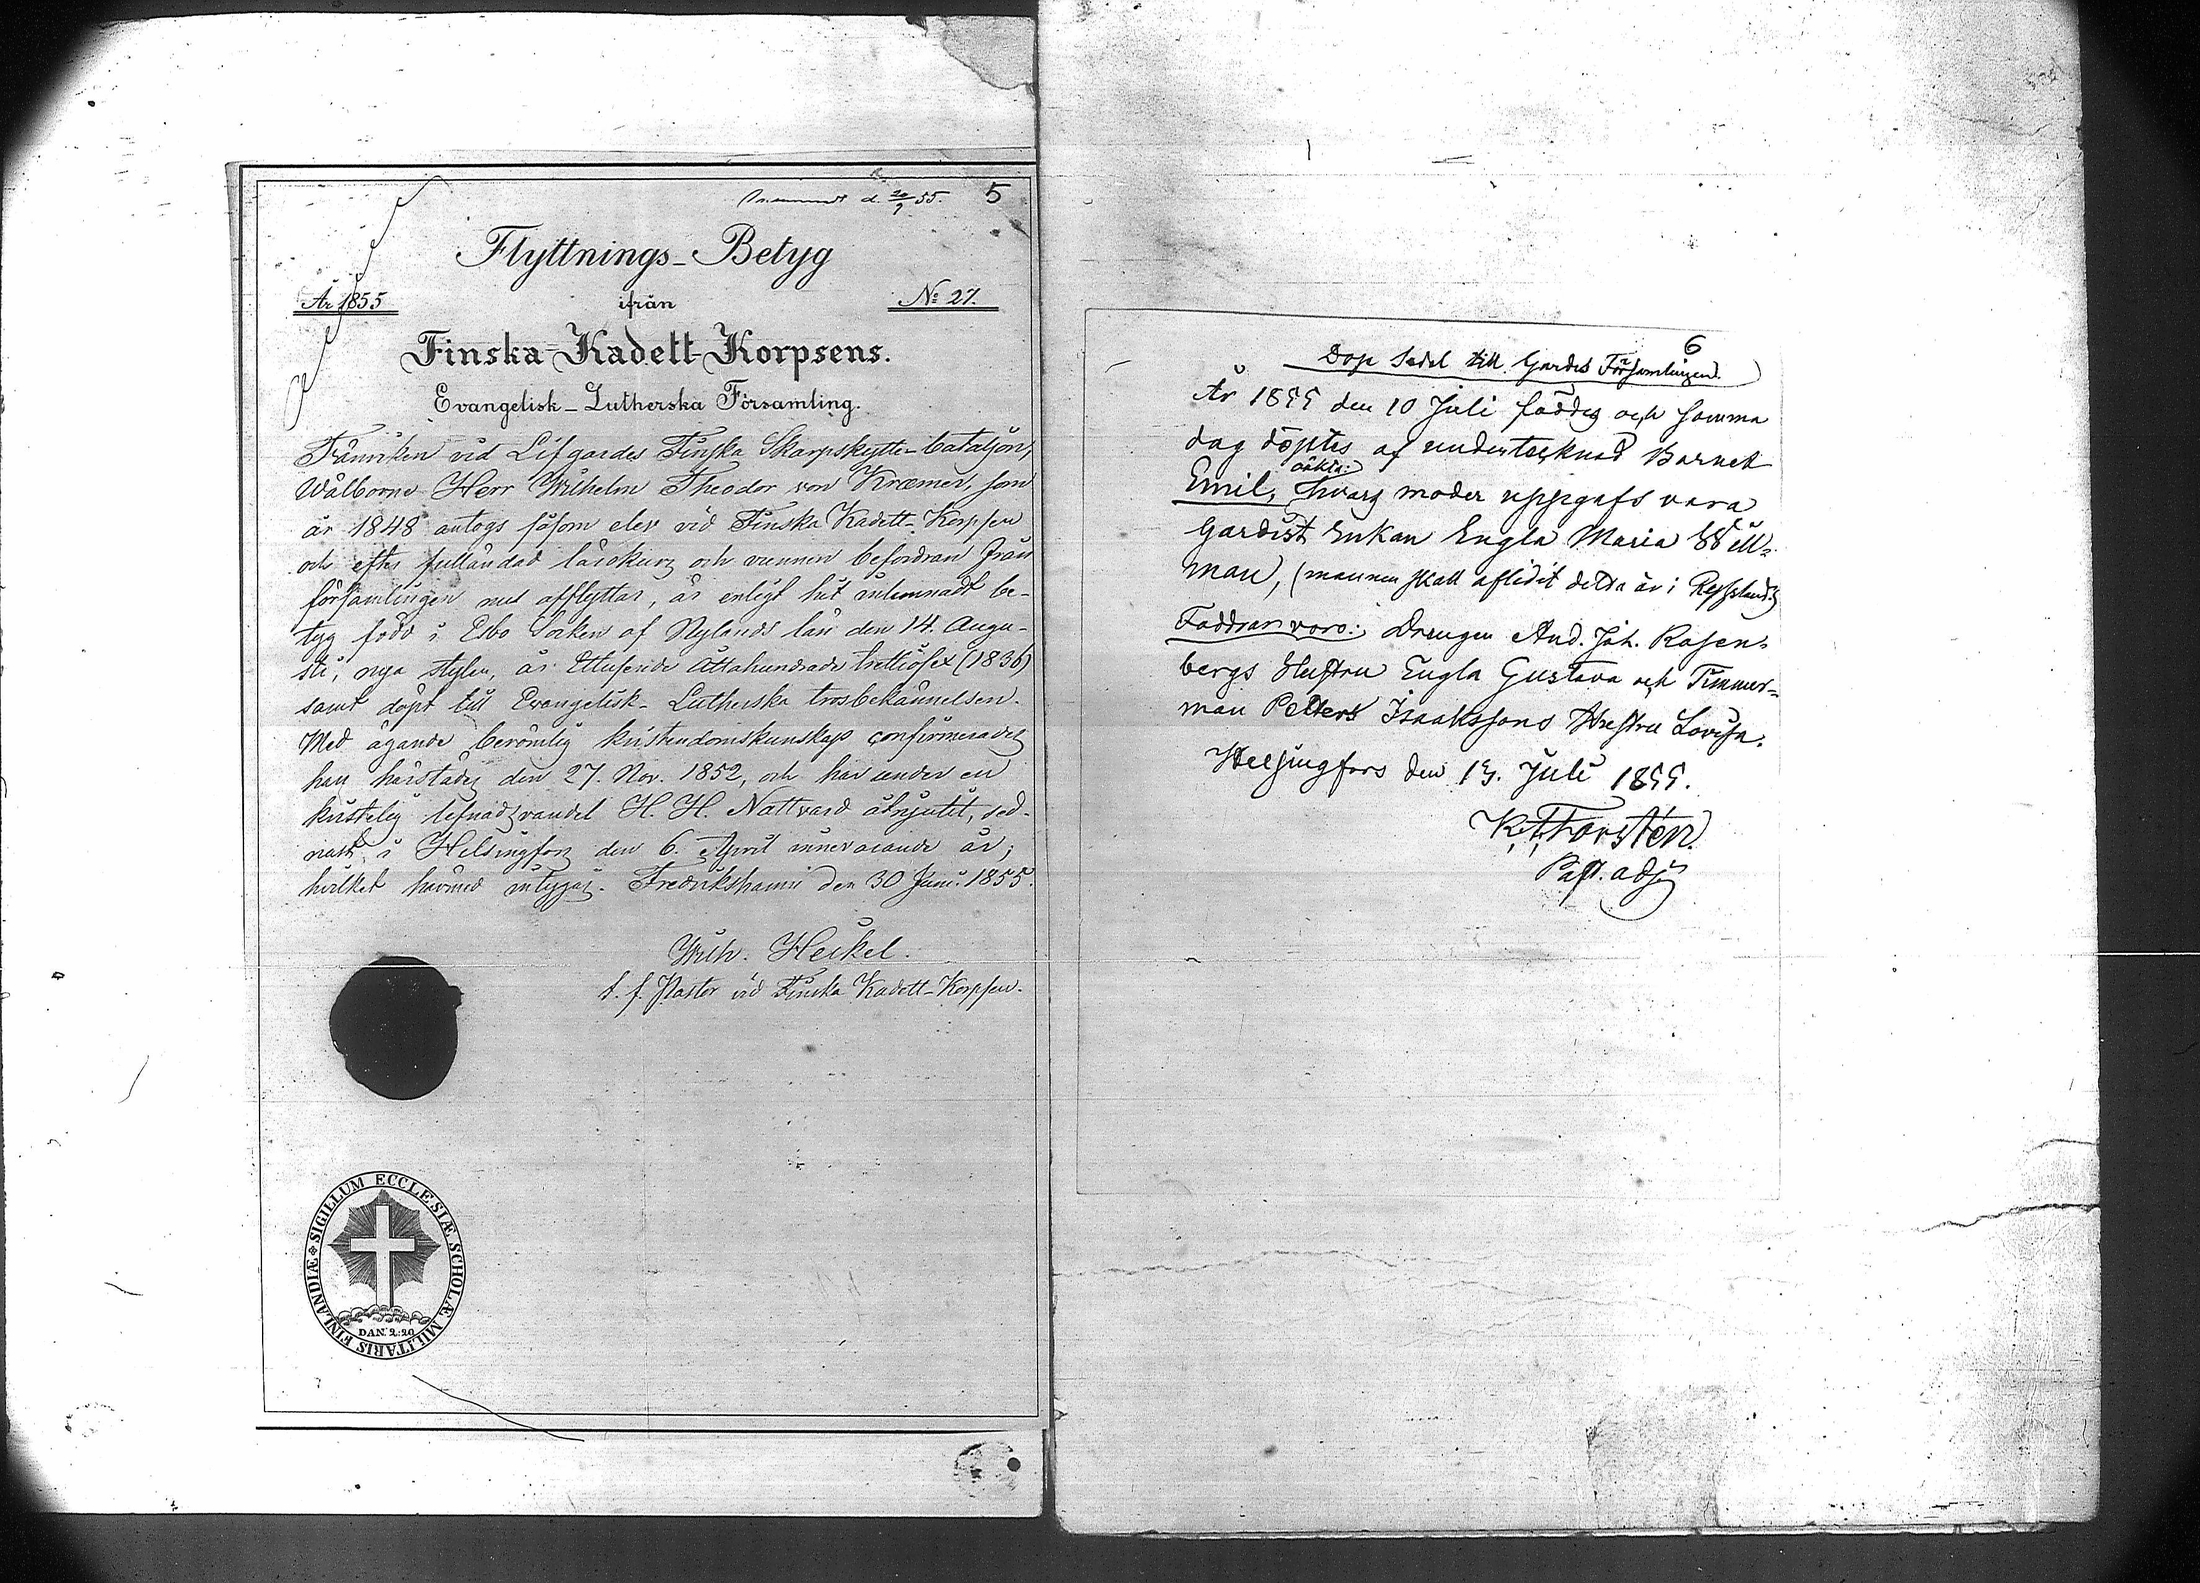 d. 20/9 55. 5
Flyttnings-Betyg
År 1855 ifrån No 27.
Finska Kadett-Korpsens.
Evangelisk-Lutherska Församling.
Fänriken vid Lifgardes Finska Skarpskytte-bataljon,
Wälborne Herr Wilhelm Theodor von Kræmer, som
år 1848 antogs såsom elev vid Finska Kadett-Korpsen
och efter fulländad lärokurs och vunnen befordran från
församlingen nu afflyttar, är enligt hit inlemnadt be-
tyg född i Esbo Socken af Nylands län den 14. Augu-
sti, nya stylen, år Ettusende åttahundrade trettiosex (1836)
samt döpt till Evangelisk-Lutherska trosbekännelsen.
Med ägande berömlig kristendomskunskap confirmerades
han härstädes den 27. Nov. 1852, och har under en
kristelig lefnadsvandel H. H. Nattvard åtnjutit, sed-
nast i Helsingfors den 6. April innevarande år;
hvilket härmed intygas. Fredrikshamn den 30 Juni 1855.
Wilh. Heikel.
t. f. Pastor vid Finska Kadett-Korpsen.
SIGILLUM ECCLESIÆ SCHOLÆ MILITARIS FINLANDIÆ
DAN. 2:20
6
Dop Sedel till Gardes Församlingen.
År 1855 den 10 Juli föddes och samma
dag döptes af undertecknad Barnet
oäkta:
Emil, hvars moder uppgafs vara
Gardist Enkan Engla Maria Will-
man, (mannen skall aflidit detta år i Ryssland)
Faddrar voro: Drengen And. Joh. Rosen-
bergs Hustru Engla Gustava och Timmer-
man Petters Isaakssons Hustru Lovisa.
Helsingfors den 13. Juli 1855.
K. T. Forstén.
Past. adj.